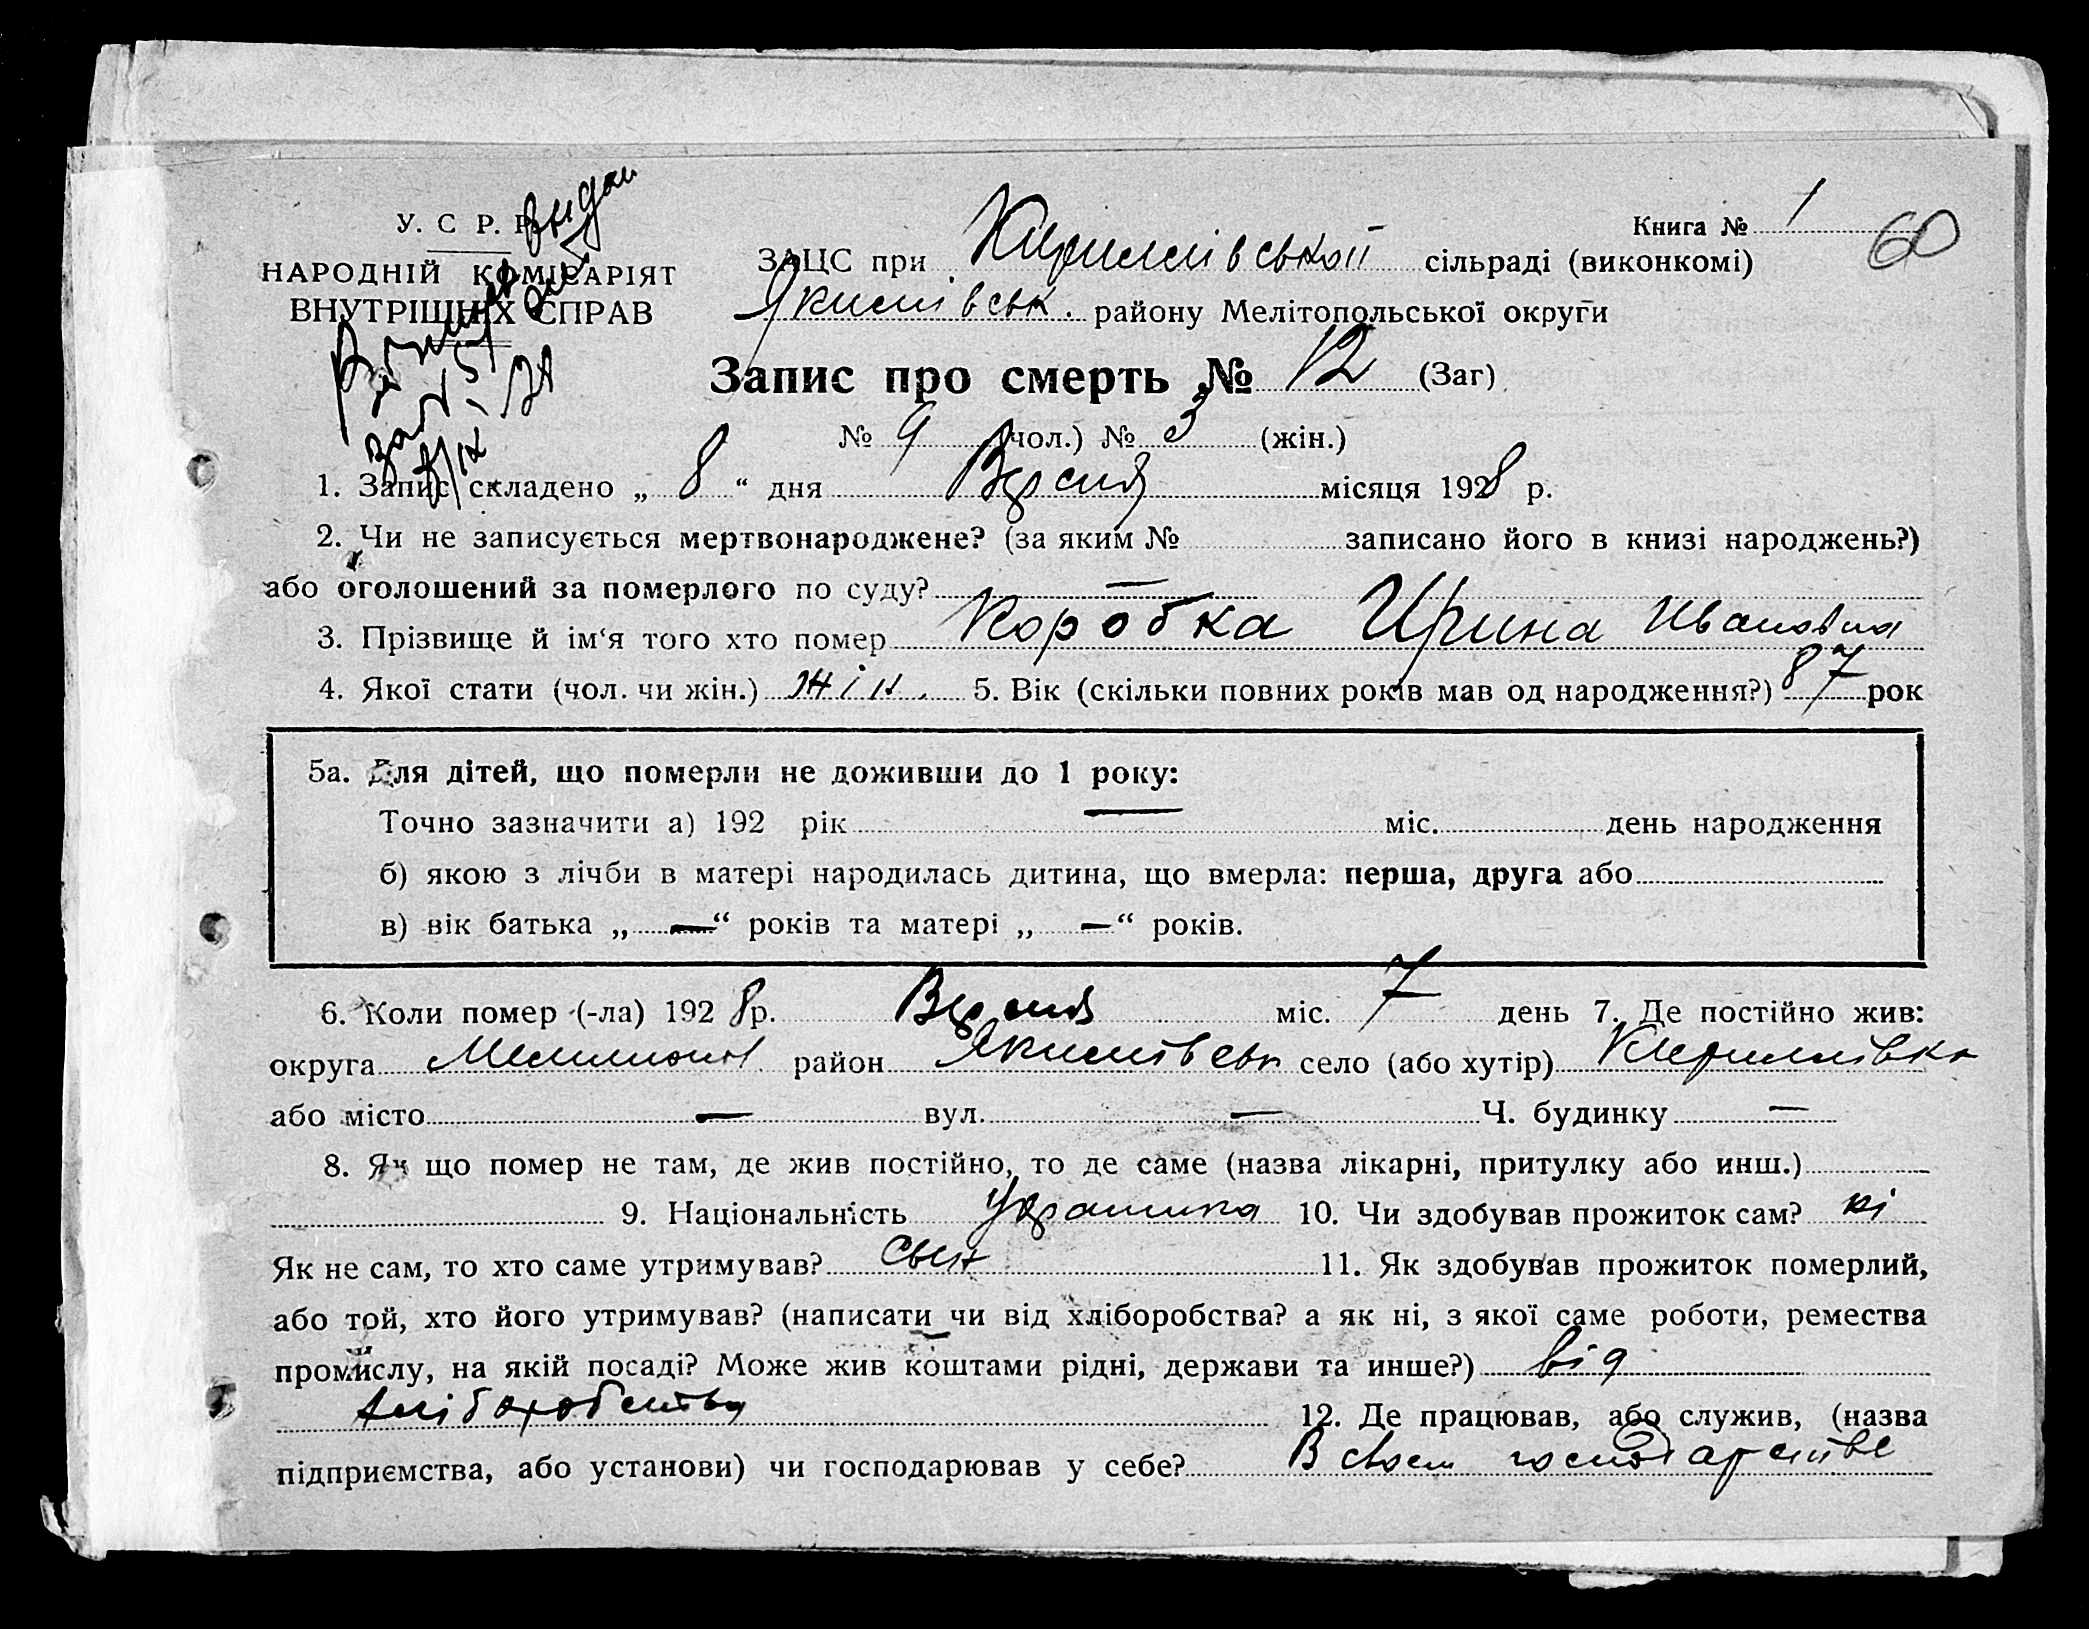 У. С. Р. Р.
НАРОДНІЙ КОМІСАРІЯТ
ВНУТРІШНІХ СПРАВ
выдан
Книга № 1
60
ЗАЦС при Кириллівської сільраді (виконкомі)
Якимівськ. району Мелітопольської округи
Запис про смерть № 12 (Заг)
№ 9 (чол.) № 3 (жін.)
1. Запис складено „ 8 “ дня Версня місяця 1928 р.
2. Чи не записується мертвонароджене? (за яким № записано його в книзі народжень?)
або оголошений за померлого по суду? —
3. Прізвище й ім‘я того хто помер Коробка Ирина Ивановна
4. Якої стати (чол. чи жін.) жін. 5. Вік (скільки повних років мав од народження?) 87 рок
5а. Для дітей, що померли не доживши до 1 року:
Точно зазначити а) 192 рік — міс. день народження
б) якою з лічби в матері народилась дитина, що вмерла: перша, друга або
в) вік батька „ — “ років та матері „ — “ років.
6. Коли помер (-ла) 1928 р. Версня міс. 7 день 7. Де постійно жив:
округа Мелитоп район Якимівськ село (або хутір) Кириллівка
або місто — вул. — Ч. будинку —
8. Як що помер не там, де жив постійно, то де саме (назва лікарні, притулку або инш.)
9. Національність Українка 10. Чи здобував прожиток сам? ні
Як не сам, то хто саме утримував? Сын 11. Як здобував прожиток померлий,
або той, хто його утримував? (написати чи від хліборобства? а як ні, з якої саме роботи, ремества
промислу, на якій посаді? Може жив коштами рідні, держави та инше?) від
хліборобства 12. Де працював, або служив, (назва
підприємства, або установи) чи господарював у себе? В своем господарстве